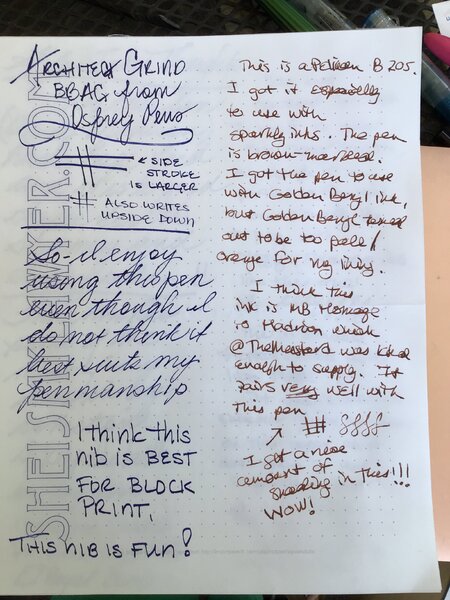 Architect Grind
BBAG from
Osprey Pens
← SIDE
STROKE
IS LARGER
ALSO WRITES
UPSIDE DOWN
So - I enjoy
using this pen
even though I
do not think it
best suits my
penmanship
I think this
nib is BEST
FOR BLOCK
PRINT.
THIS NIB IS FUN!
SHEISTALAWYER.COM
This is a Pelikan B 205.
I got it especially
to use with
sparkly inks. The pen
is brown-marbled.
I got the pen to use
with Golden Beryl ink,
but Golden Beryl turned
out to be too pale/
orange for my liking.
I think this
ink is MB Homage
to Hadrian which
was kind
enough to supply. It
pairs very well with
this pen
I get a nice
amount of
shading in this!!!
WOW!